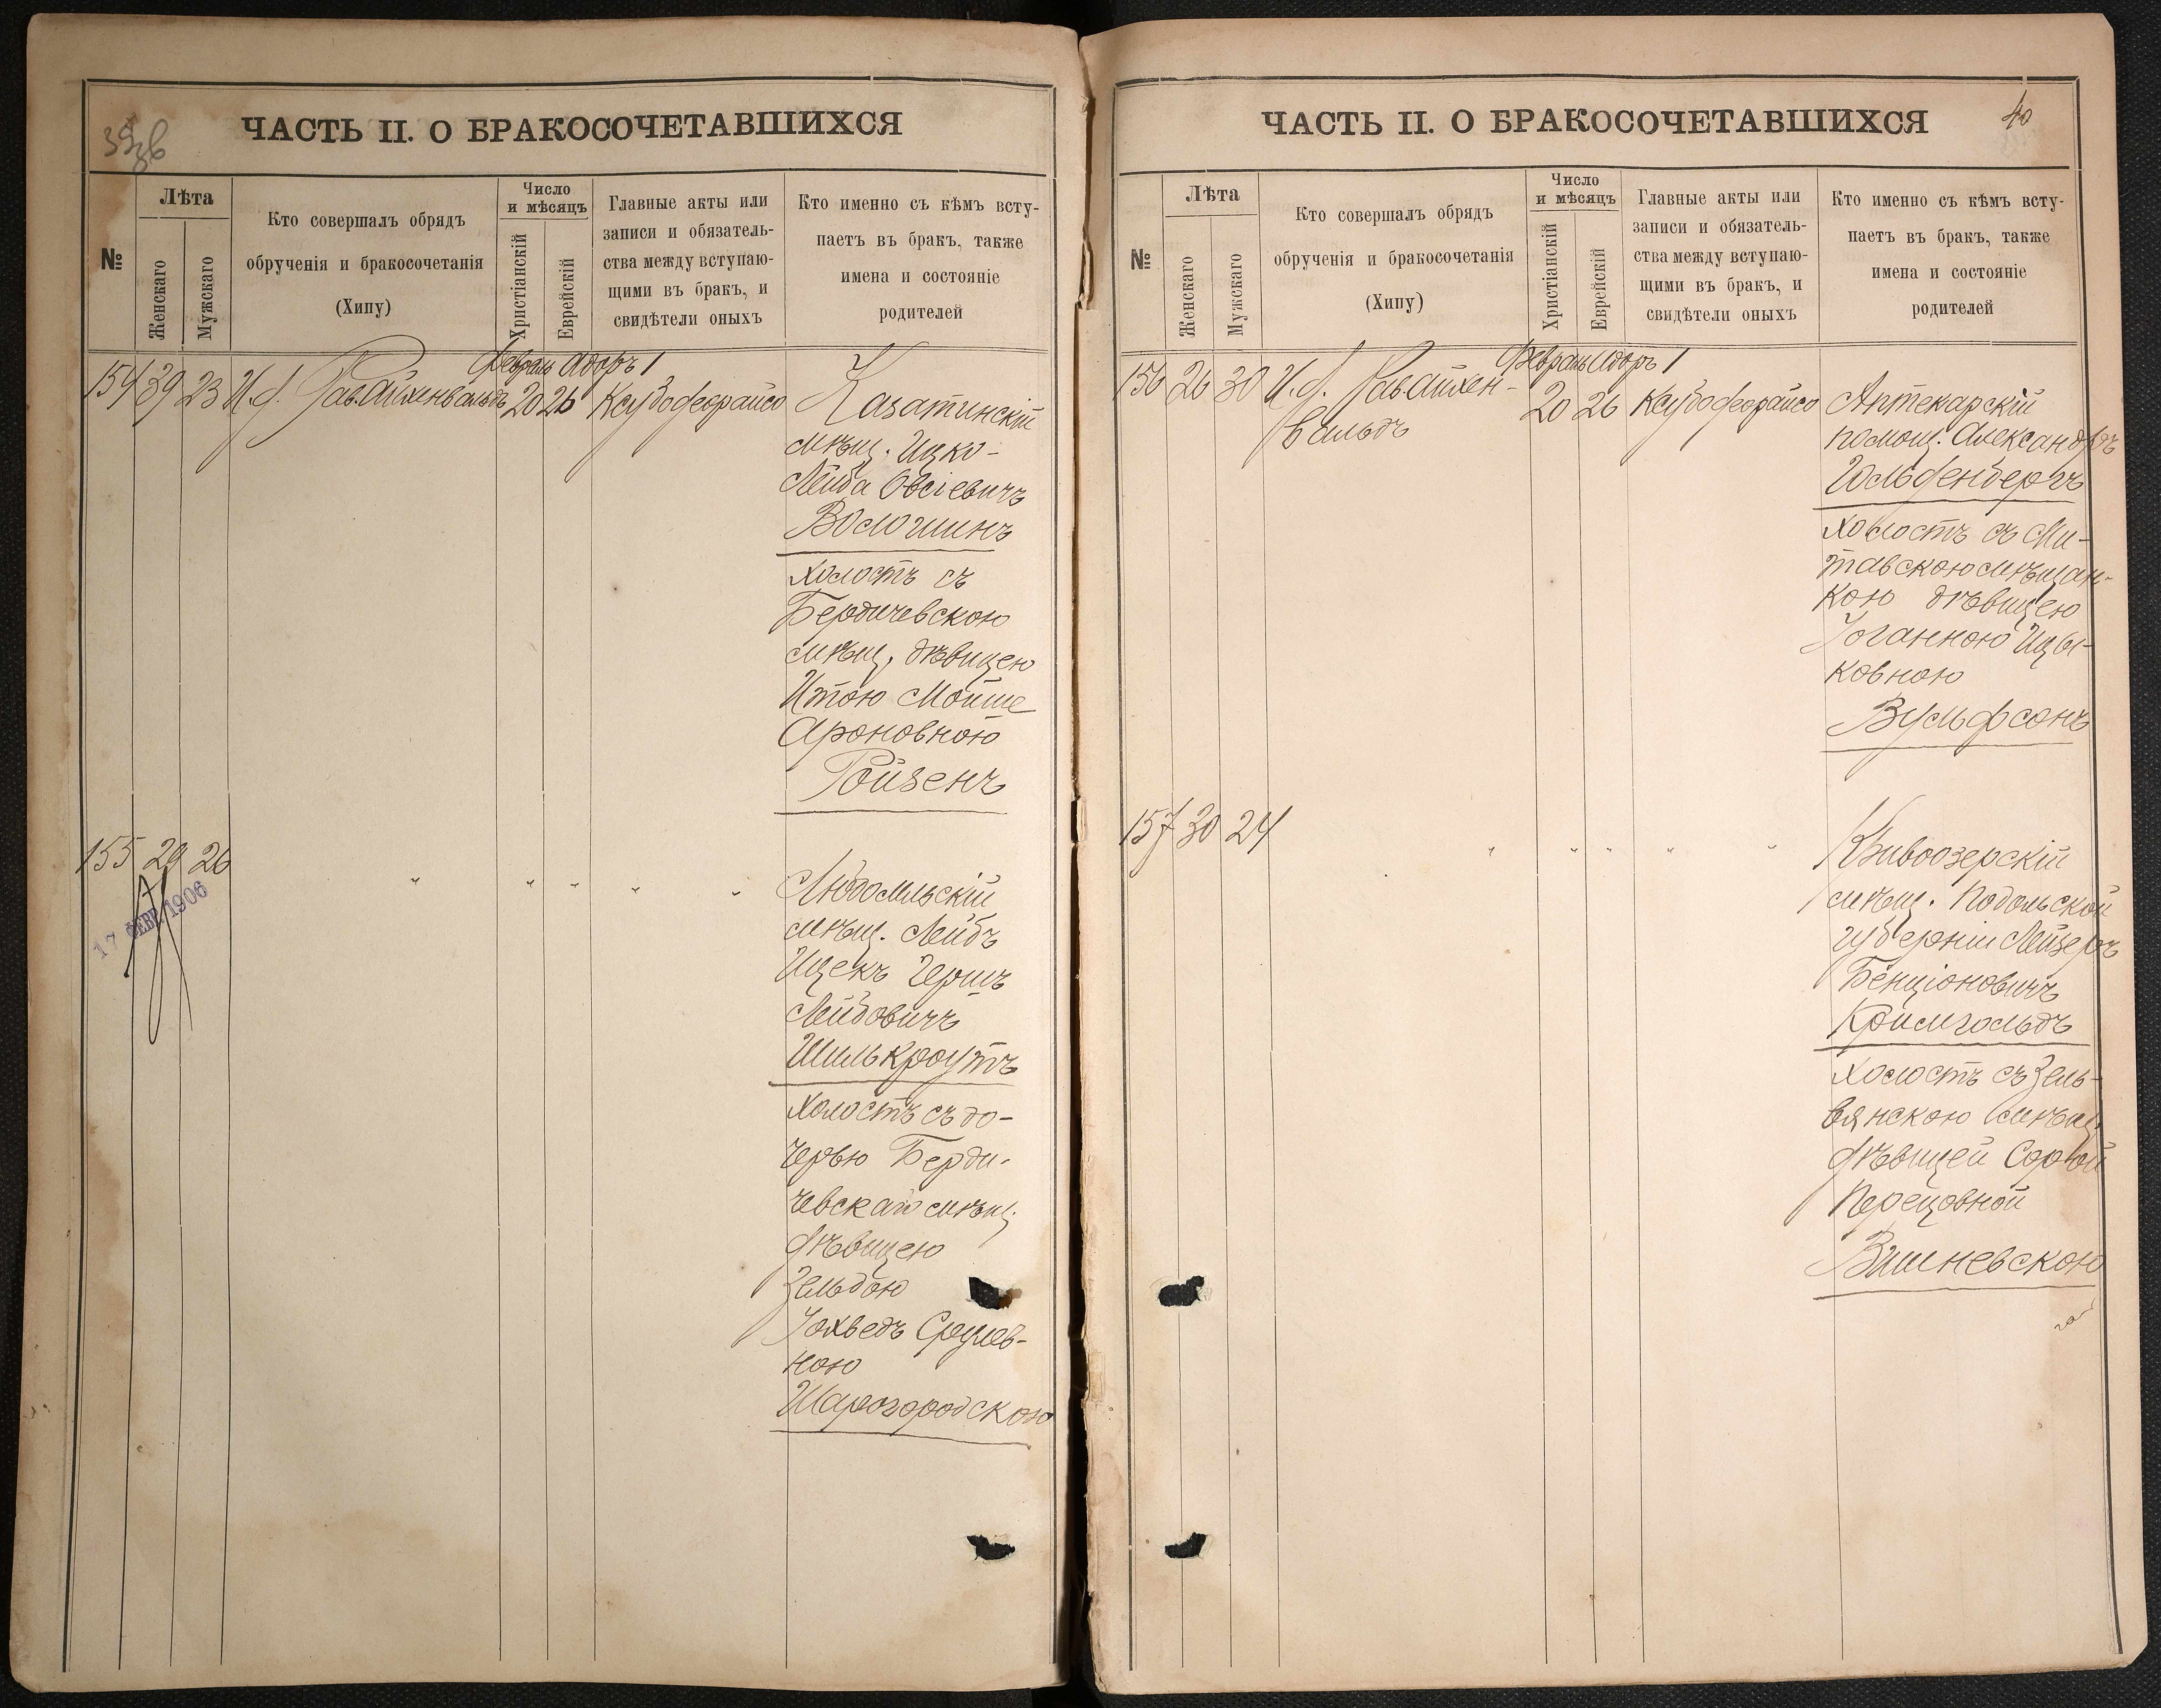 ЧАСТЬ II. О БРАКОСОЧЕТАВШИХСЯ
№
Лѣта
Женскаго
Мужскаго
Кто совершалъ обрядъ
обрученія и бракосочетанія
(Хипу)
Число
и мѣсяцъ
Христіанскій
Еврейскій
Главные акты или
записи и обязатель-
ства между вступаю-
щими въ бракъ, и
свидѣтели оныхъ
Кто именно съ кѣмъ всту-
паетъ въ бракъ, также
имена и состояніе
родителей
Февраль Адоръ 1
154 39 23 И. д. Рав. Айхенвальдъ 20 26
Казатинскій
мѣщ. Ицко-
Лейба Овсіевичъ
Волошинъ
холостъ съ
Бердичевскою
мѣщ. дѣвицею
Итою Мойше
Ароновною
Ройзенъ
155 29 26 " " " " "
17 ФЕВР. 1906
Любомльскій
мѣщ. Лейбъ
Ицекъ Гершъ
Лейбовичъ
Шилькроутъ
холостъ съ до-
черью Берди-
чевскаго мѣщ.
дѣвицею
Зельдою
Іохведъ Срулев-
ною
Шарогородскою
ЧАСТЬ II. О БРАКОСОЧЕТАВШИХСЯ
40
№
Лѣта
Женскаго
Мужскаго
Кто совершалъ обрядъ
обрученія и бракосочетанія
(Хипу)
Число
и мѣсяцъ
Христіанскій
Еврейскій
Главные акты или
записи и обязатель-
ства между вступаю-
щими въ бракъ, и
свидѣтели оныхъ
Кто именно съ кѣмъ всту-
паетъ въ бракъ, также
имена и состояніе
родителей
Февраль Адоръ 1
156 26 30 И. д. Рав. Айхен-
вальдъ 20 26
Аптекарскій
помощ. Александръ
Гольденбергъ
холостъ съ Ми-
тавскою мѣщан-
кою дѣвицею
Іоганною Ицы-
ковною
Вульфсонъ
157 30 24 " " " " "
Кривоозерскій
мѣщ. Подольской
губерніи Лейзеръ
Бенціоновичъ
Кримгольдъ
холостъ съ Зель-
вянскою мѣщ.
дѣвицей Сорой
Перецовной
Вишневскою